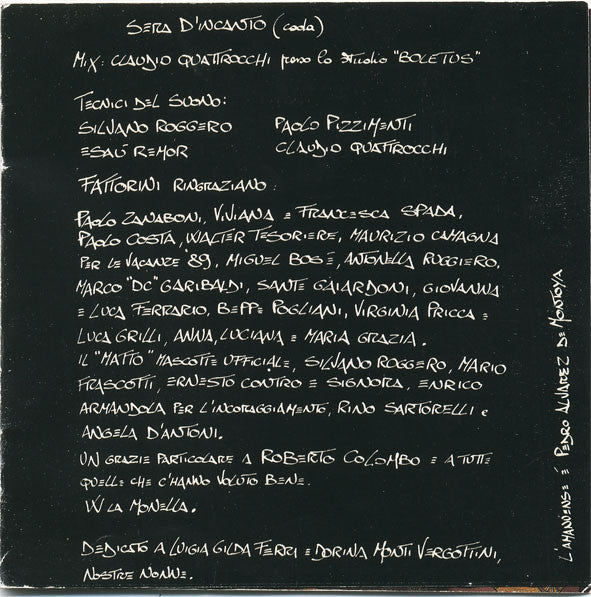 SERA D'INCANTO (coda)
MIX: CLAUDIO QUATTROCCHI presso lo studio "BOLETUS"
TECNICI DEL SUONO:
SILVANO ROGGERO PAOLO PIZZIMENTI
ESAÚ REMOR CLAUDIO QUATTROCCHI
FATTORINI RINGRAZIANO:
PAOLO ZANABONI, VIVIANA E FRANCESCA SPADA,
PAOLO COSTA, WALTER TESORIERE, MAURIZIO CAMAGNA
PER LE VACANZE '89, MIGUEL BOSÉ, ANTONELLA RUGGIERO,
MARCO "DC" GARIBALDI, SANTE GAIARDONI, GIOVANNA
E LUCA FERRARIO, BEPPE POGLIANI, VIRGINIA PRICCA E
LUCA GRILLI, ANNA, LUCIANA E MARIA GRAZIA.
IL "MATTO" MASCOTTE UFFICIALE, SILVANO ROGGERO, MARIO
FRASCOTTI, ERNESTO CONTRO E SIGNORA, ENRICO
ARMANDOLA PER L'INCORAGGIAMENTO, RINO SARTORELLI e
ANGELA D'ANTONI.
UN GRAZIE PARTICOLARE A ROBERTO COLOMBO E A TUTTE
QUELLE CHE C'HANNO VOLUTO BENE.
W LA MONELLA.
DEDICATO A LUIGIA GILDA FERRI E DORINA MONTI VERGOTTINI,
NOSTRE NONNE.
L'AMANUENSE É PEDRO ALVAREZ DE MONTOYA